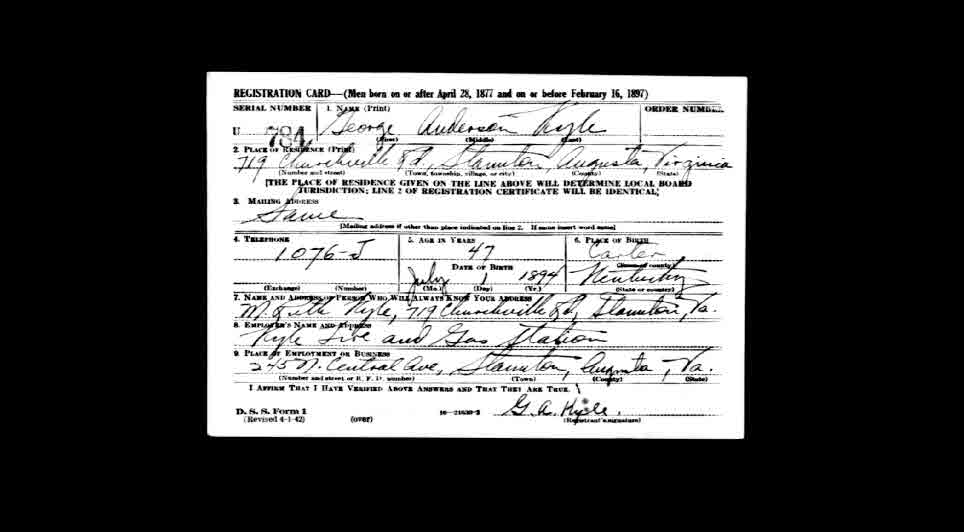 REGISTRATION CARD—(Men born on or after April 28, 1877 and on or before February 16, 1897)
SERIAL NUMBER 1. NAME (Print) ORDER NUMBER
U 784 George Anderson Kyle
(First) (Middle) (Last)
2. PLACE OF RESIDENCE (Print)
719 Churchville Rd., Staunton, Augusta, Virginia
(Number and street) (Town, township, village, or city) (County) (State)
[THE PLACE OF RESIDENCE GIVEN ON THE LINE ABOVE WILL DETERMINE LOCAL BOARD
JURISDICTION; LINE 2 OF REGISTRATION CERTIFICATE WILL BE IDENTICAL]
3. MAILING ADDRESS
Same
[Mailing address if other than place indicated on line 2. If same insert word same]
4. TELEPHONE 5. AGE IN YEARS 6. PLACE OF BIRTH
1076-J 47 Carter
DATE OF BIRTH (Town or county)
July 1 1894 Kentucky
(Exchange) (Number) (Mo.) (Day) (Yr.) (State or country)
7. NAME AND ADDRESS OF PERSON WHO WILL ALWAYS KNOW YOUR ADDRESS
M. Ruth Kyle, 719 Churchville Rd, Staunton, Va.
8. EMPLOYER'S NAME AND ADDRESS
Kyle Tire and Gas Station
9. PLACE OF EMPLOYMENT OR BUSINESS
245 N. Central Ave, Staunton, Augusta, Va.
(Number and street or R. F. D. number) (Town) (County) (State)
I AFFIRM THAT I HAVE VERIFIED ABOVE ANSWERS AND THAT THEY ARE TRUE.
D. S. S. Form 1 G. A. Kyle.
(Revised 4-1-42) (over) (Registrant's signature)